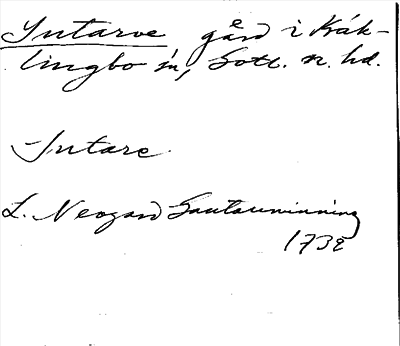 Intarve gård i Kräk-
lingbo sn, Gotl. n. hd.
Intare
L. Neogard Gautauminning
1732